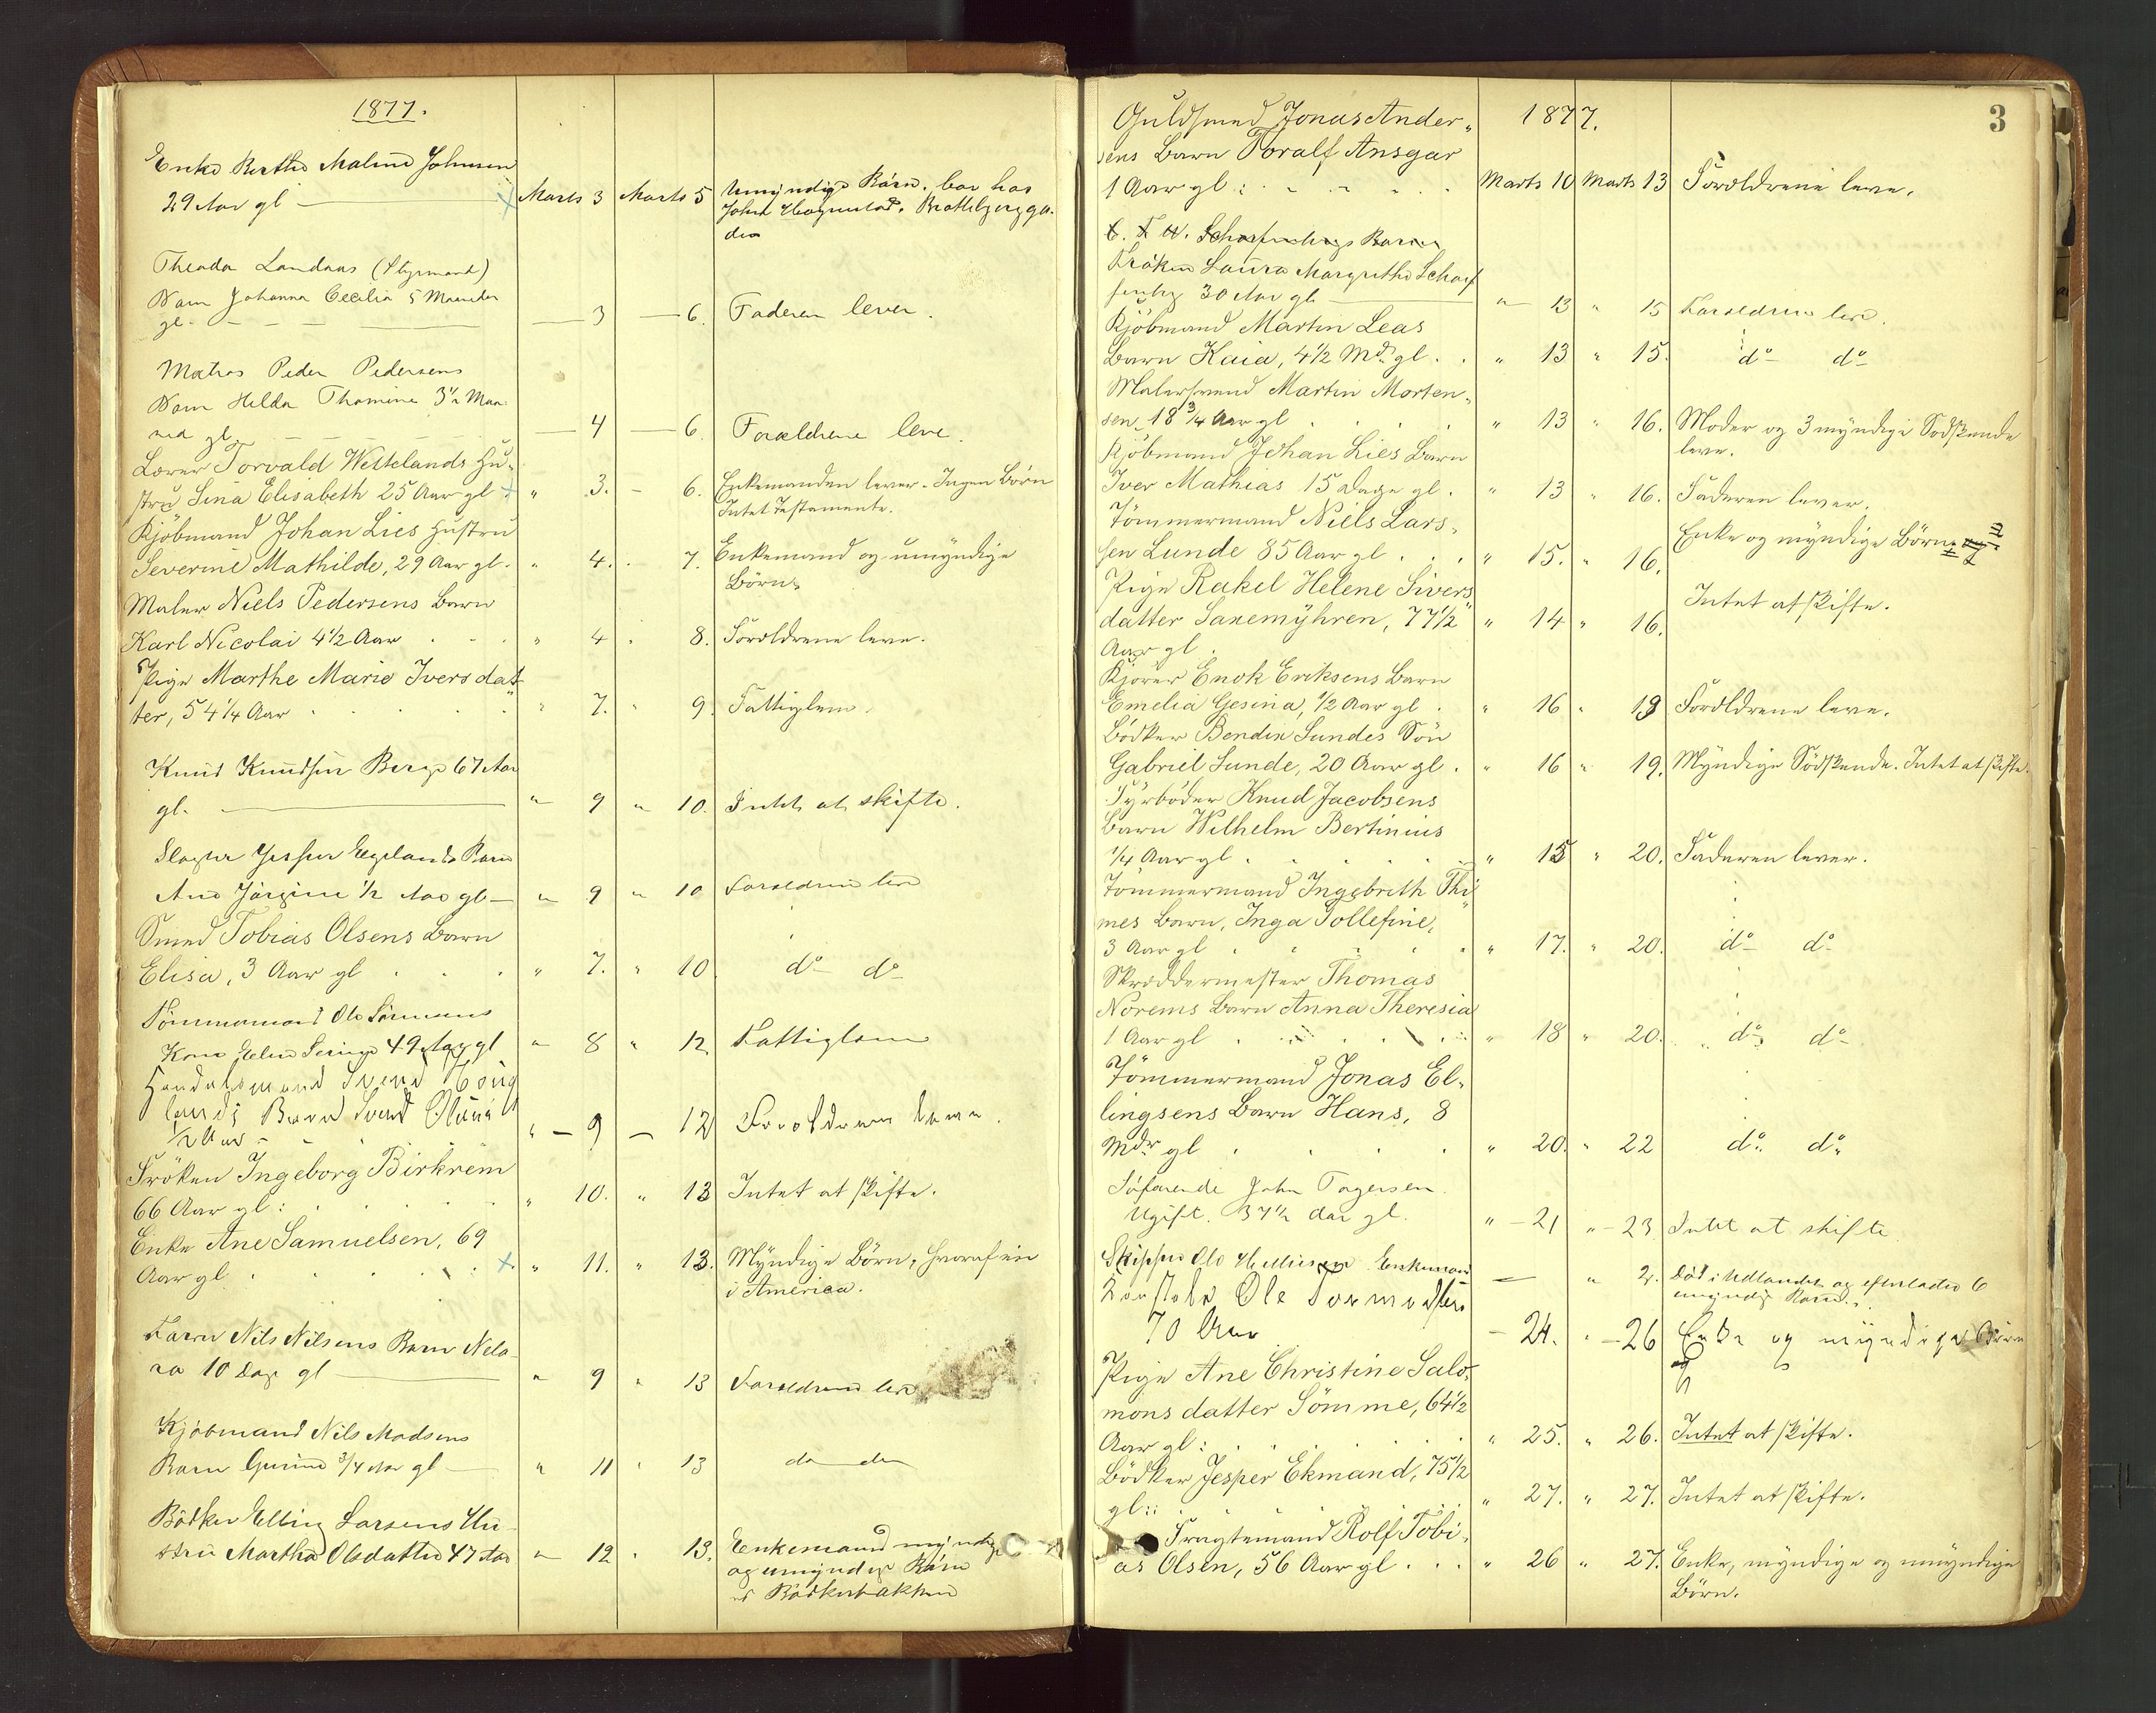 1877.
Enke Berthe Maline Johnsen
29 Aar gl — Marts 3 Marts 5 Umyndige Børn, bor hos
John
Theodor Landaas (Styrmand)
Barn Johanna Cecilia 5 Maaneder
gl. — 3 — 6. Faderen lever.
Matros Peder Pedersens
Barn Helda Thomine 3½ Maa-
ned gl. — 4 — 6. Forældrene leve.
Lærer Torvald Westelands Hu-
stru Sina Elisabeth 25 Aar gl " 3. - 6. Enkemanden lever. Ingen Børn
Intet Testamente.
Kjøbmand Johan Lies Hustru
Severine Mathilde, 29 Aar gl. " 4. 7. Enkemand og umyndige
Børn.
Maler Niels Pedersens Barn
Karl Nicolai 4½ Aar " 4 " 8. Forældrene leve.
Pige Marthe Marie Iversdat-
ter, 54¼ Aar " 7. " 9. Fattiglem.
Knud Knudsen Berge 67 Aar
gl. — " 9 " 10. Intet at skifte.
Slagter Jesper Egelands Barn
Ane Jørgine ½ Aar gl — " 9 " 10 Forældrene leve
Smed Tobias Olsens Barn
Elisa, 3 Aar gl " 7. " 10 do do
Tømmermand Ole Sørensens
Kone Helene Serine 49 Aar gl " 8 " 12 Fattiglem
Handelsmand Svend Houg
lands Barn Svend Olaus
½ Aar - " — 9 — 12 Forældrene leve.
Frøken Ingeborg Birkrem
66 Aar gl: " 10. " 13 Intet at skifte.
Enke Ane Samuelsen, 69
Aar gl " 11. " 13. Myndige Børn, hvoraf een
i America.
Nils Nilsens Barn
10 Dage gl — " 9 " 13 Forældrene leve
Kjøbmand Nils Madsens
Barn Gurine ¾ Aar gl — " 11 " 13 do do
Bødker Elling Larsens Hu-
stru Martha Olsdatter 47 Aar " 12 " 13. Enkemand myndige
og umyndige Børn
Bødkerbakken
3
Guldsmed Jonas Ander- 1877.
sens Barn Toralf Ansgar
1 Aar gl: Marts 10 Marts 13 Forældrene leve.
Frøken Laura Margrethe Scharf
fenberg 30 Aar gl. — " 13 " 15 Forældrene leve.
Kjøbmand Martin Leas
Barn Kaia, 4½ Mdr gl. " 13 " 15. do do
Malersvend Martin Morten-
sen, 18¾ Aar gl " 13 " 16. Moder og 3 myndige Sødskende
leve.
Kjøbmand Johan Lies Barn
Iver Mathias 15 Dage gl. " 13 " 16. Faderen lever.
Tømmermand Niels Lars-
sen Lunde 85 Aar gl " 15. " 16. Enke og myndige Børn
Pige Rakel Helene Sivers
datter Sanemyhren, 77½ " 14 " 16. Intet at skifte.
Aar gl.
Kjører Enok Eriksens Barn
Emelia Gesina, ½ Aar gl. " 16 " 19 Forældrene leve.
Bødker Bendix Sundes Søn
Gabriel Sunde, 20 Aar gl. " 16 " 19. Myndige Sødskende. Intet at skifte.
Fyrbøder Knud Jacobsens
Barn Wilhelm Bertinius
¼ Aar gl " 15 " 20. Faderen lever.
Tømmermand Ingebrith Thi-
mes Barn, Inga Tollefine,
3 Aar gl " 17. " 20. do do
Skræddermester Thomas
Norems Barn Anna Theresia
1 Aar gl " 18 " 20. do do
Tømmermand Jonas El-
lingsens Barn Hans, 8
Mdr gl " 20. " 22 do do
Søfarende John Tagersen
Ugift. 37½ Aar gl. " — 21 " — 23 Intet at skifte
Skipper Ole Enkemand — " 2. Død i Udlandet og efterlader 6
umyndige Børn.
Ole Tormodsen
70 Aar — 24. " — 26 Enke og myndige Børn
Pige Ane Christine Salo-
monsdatter Sømme, 64½
Aar gl: " 25. " 26. Intet at skifte.
Bødker Jesper Ekmand, 75½
gl: " 27. " 27. Intet at skifte.
Fragtemand Rolf Tobi-
as Olsen, 56 Aar gl " 26 " 27. Enke, myndige og umyndige
Børn.